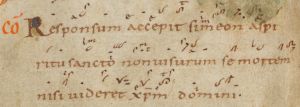 cō Responsum accepit simeon a spi
ritu sancto non uisurum se mortem
nisi uideret xpm domini.